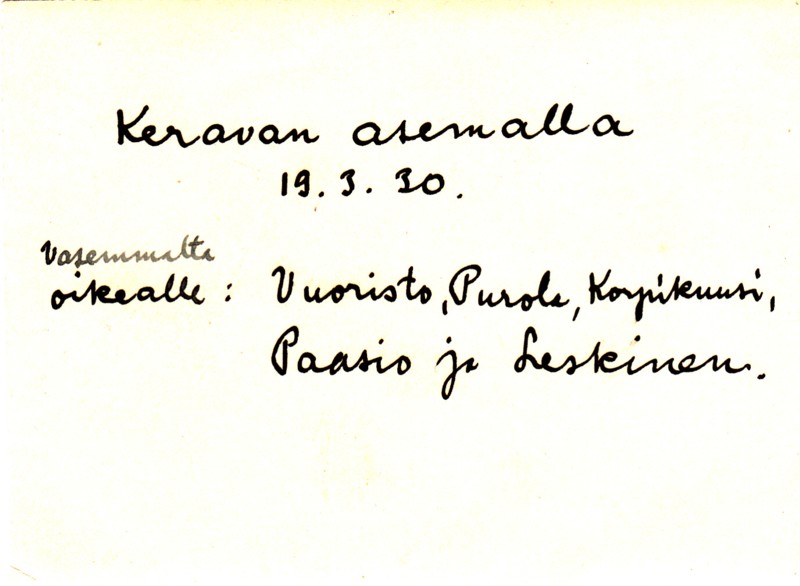 Keravan asemalla
19. 3. 30.
Vasemmalta
oikealle : Vuoristo, Purola, Korpikuusi,
Paasio ja Leskinen.